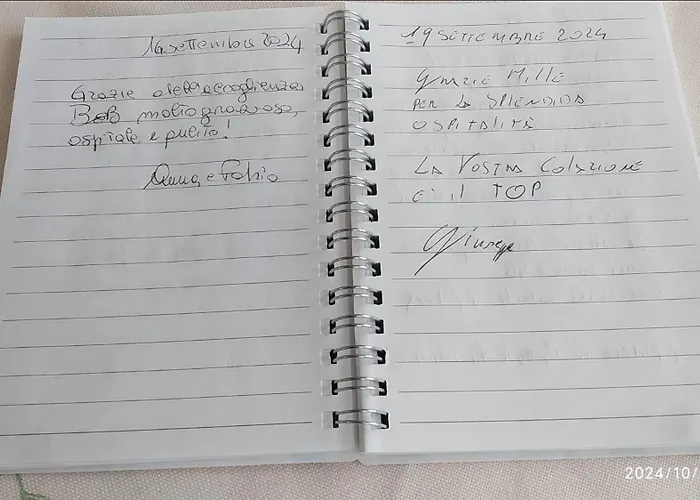 16 settembre 2024
Grazie dell'accoglienza
B&B molto grazioso,
ospitale e pulito!
Anna e Fabio
19 SETTEMBRE 2024
GRAZIE MILLE
PER LA SPLENDIDA
OSPITALITÀ
LA VOSTRA COLAZIONE
E' il TOP
Giusepp
2024/10/